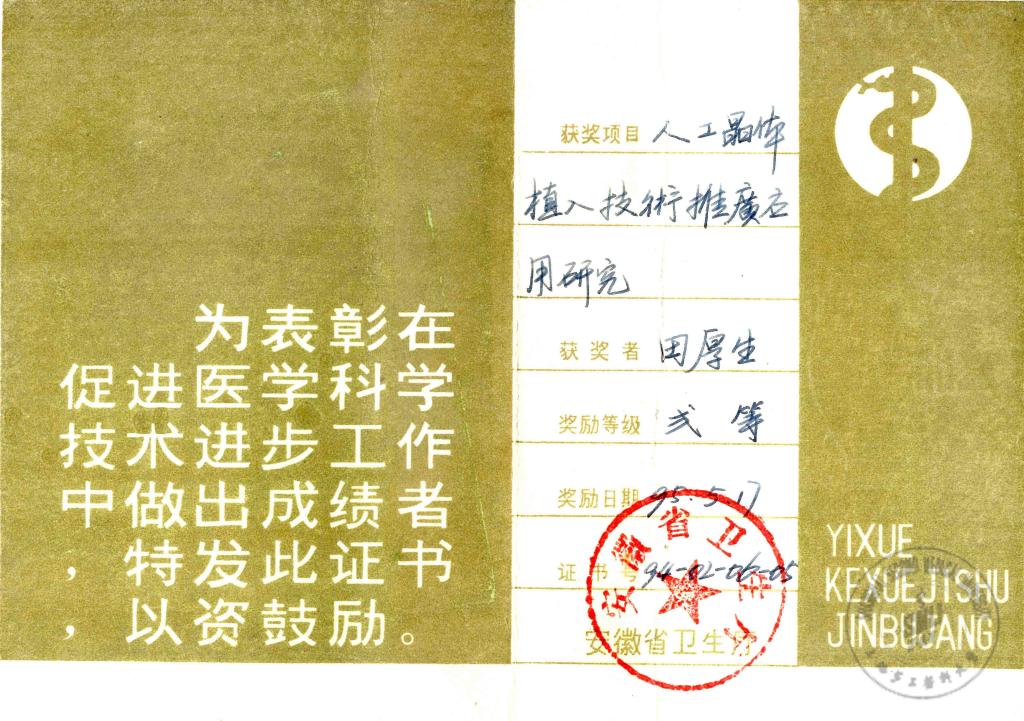 为表彰在
促进医学科学
技术进步工作
中做出成绩者
，特发此证书
，以资鼓励。
获奖项目 人工晶体
植入技術推廣应
用研究
获奖者 田厚生
奖励等级 弍等
奖励日期 95.5.17
证书号 94-02-06-05
安徽省卫生厅
安徽省卫生厅
YIXUE
KEXUEJISHU
JINBUJIANG